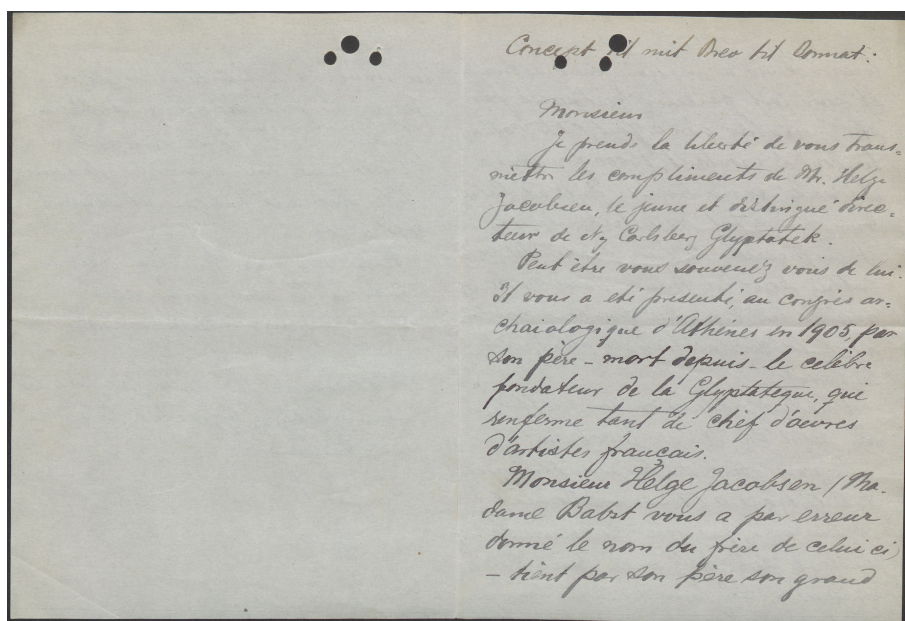 Concept til mit Brev til Bonnat:
Monsieur
Je prends la liberté de vous trans=
mettre les compliments de Mr. Helge
Jacobsen, le jeune et distingué direc=
teur de Ny Carlsberg Glyptotek.
Peut être vous souvenez vous de lui.
Il vous a eté presenté, au congrès ar=
chaiologique d'Athènes en 1905, par
son père – mort depuis – le celèbre
fondateur de la Glyptoteque, qui
renferme tant de chef d'oevres
d'artistes français.
Monsieur Helge Jacobsen (Ma-
dame Babst vous a par erreur
donné le nom du frère de celui ci)
– tient par son père son grand